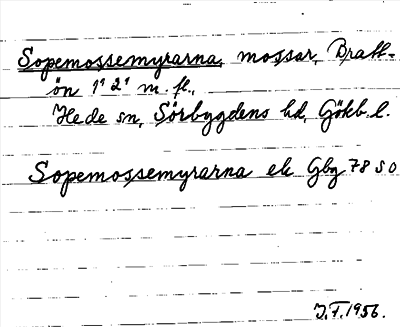 Sopemossemyrarna, mossar, Bratt-
ön 1¹ 2¹ m. fl.,
Hede sn, Sörbygdens hd, Gökb. l.
Sopemossemyrarna ek Gbg 78 SO
J.F. 1956.